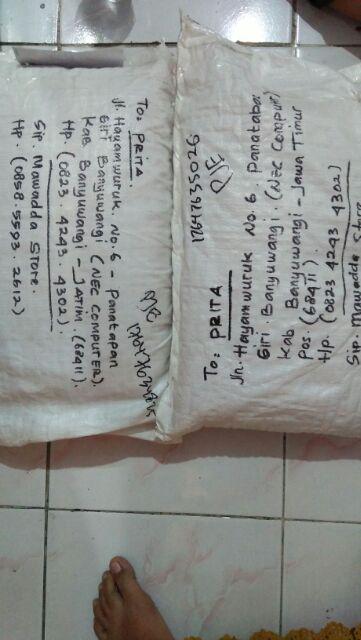 To: PRITA
Jl. Hayamwuruk. No. 6 - Panatapan
Giri Banyuwangi (NEC COMPUTER).
Kab Banyuwangi - JATIM (68411).
Hp (0823. 4243. 4302).
Sip. Mawadda Store.
Hp. (0858. 5593. 2612)
JNE
17647635026
JNE
To: PRITA
Jln. Hayamwuruk No. 6. Panataba
Giri. Banyuwangi. (NEC Computr)
Kab Banyuwangi - Jawa Timur
Pos (68411).
Hp. (0823 4243 4302)
Sip. Mawadda Store